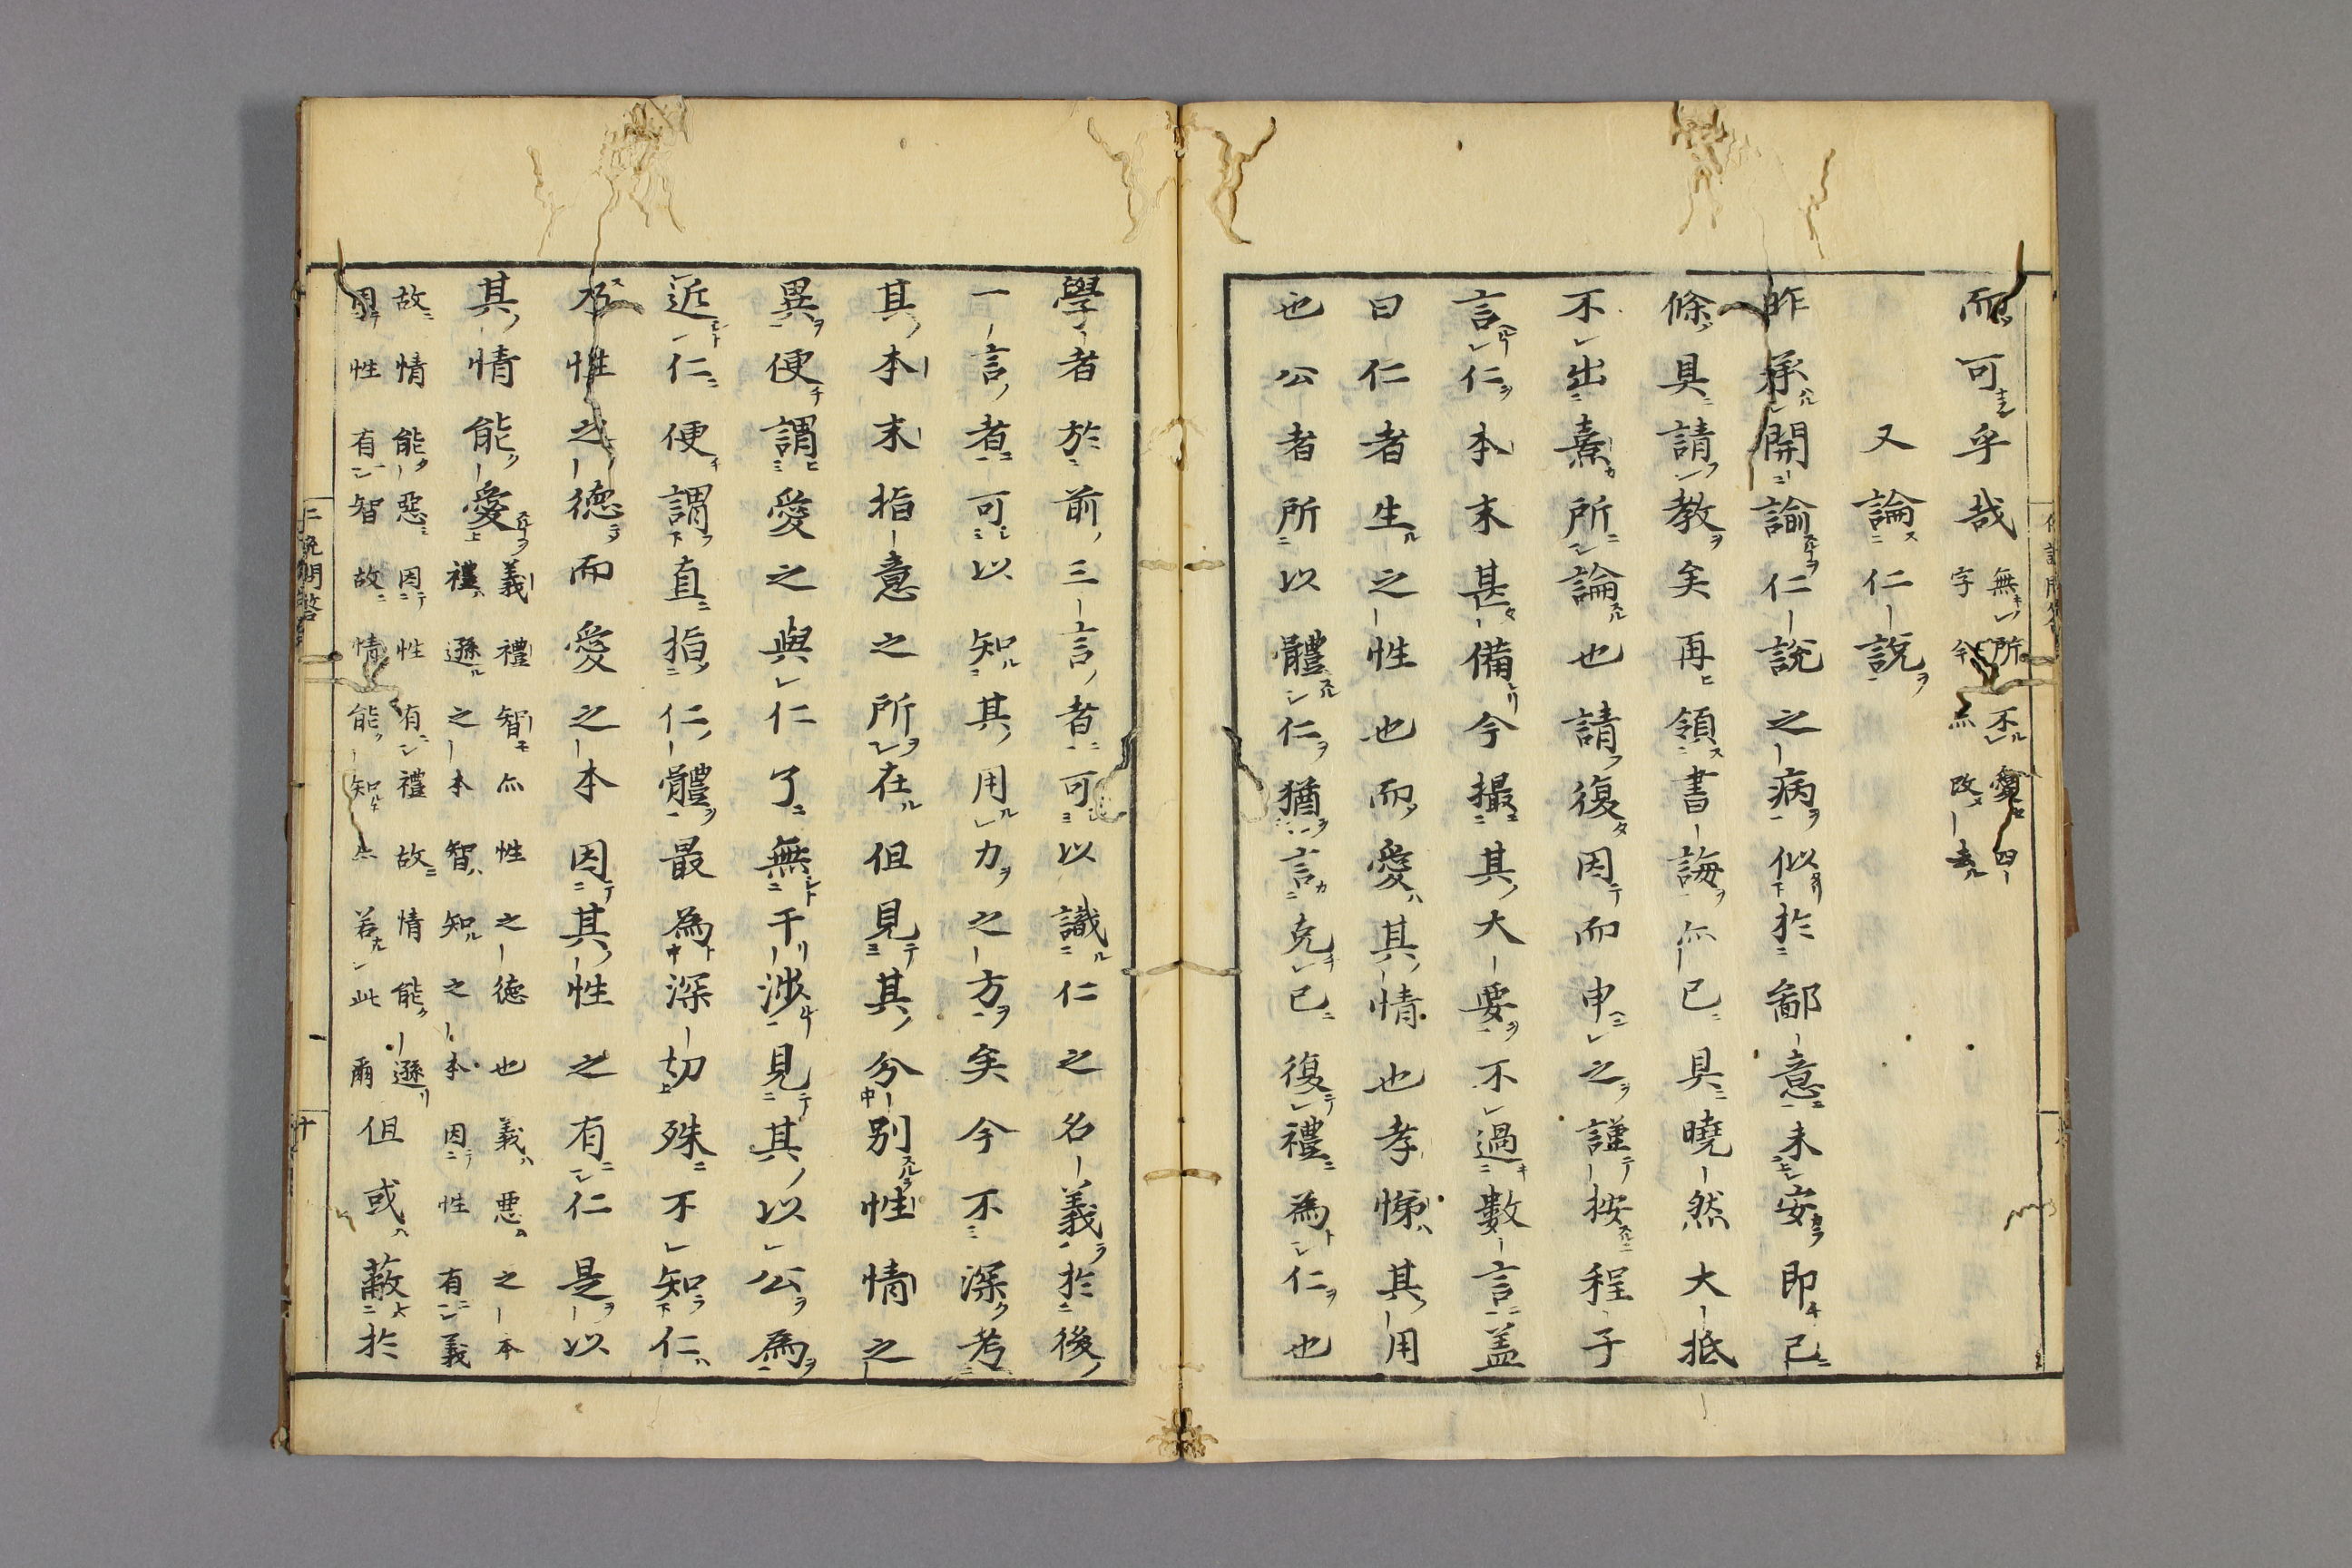 而可乎哉
無所不愛四
字今亦改去
又論仁說
昨承開諭仁說之病似於鄙意未安即已
條具請教矣再領書誨亦已具曉然大抵
不出熹所論也請復因而申之謹按程子
言仁本末甚備今撮其大要不過數言盖
曰仁者生之性也而愛其情也孝悌其用
也公者所以體仁猶言克己復禮為仁也
學者於前三言者可以識仁之名義於後
一言者可以知其用力之方矣今不深考
其本末指意之所在但見其分別性情之
異便謂愛之與仁了無干涉見其以公為
近仁便謂直指仁體最為深切殊不知仁
乃性之德而愛之本因其性之有仁是以
其情能愛
義禮智亦性之德也義惡之本
禮遜之本智知之本因性有義
故情能惡因性有禮故情能遜
因性有智故情能知亦若此爾
但或蔽於
仁說問答
十